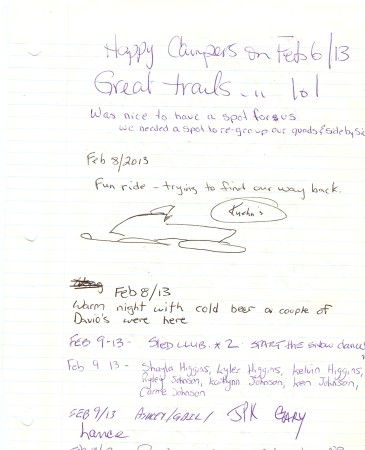 Happy Campers on Feb 6/13
Great trails... lol
Was nice to have a spot for us
we needed a spot to re-group our quads & side by si
Feb 8/2013
Fun ride - trying to find our way back.
Kuehn's
Feb 8/13
Warm night with cold beer a couple of
Davio's were here
FEB 9-13- SLED CLUB. #2 START the snow dance
Feb 9 13 - Shayla Higgins, Kyler Higgins, Kelvin Higgins,
Kyley Johnson, Kaitlynn Johnson, Ken Johnson,
Carrie Johnson
FEB 9/13 ASHLEY/GAIL/ JPK GARY
Lance